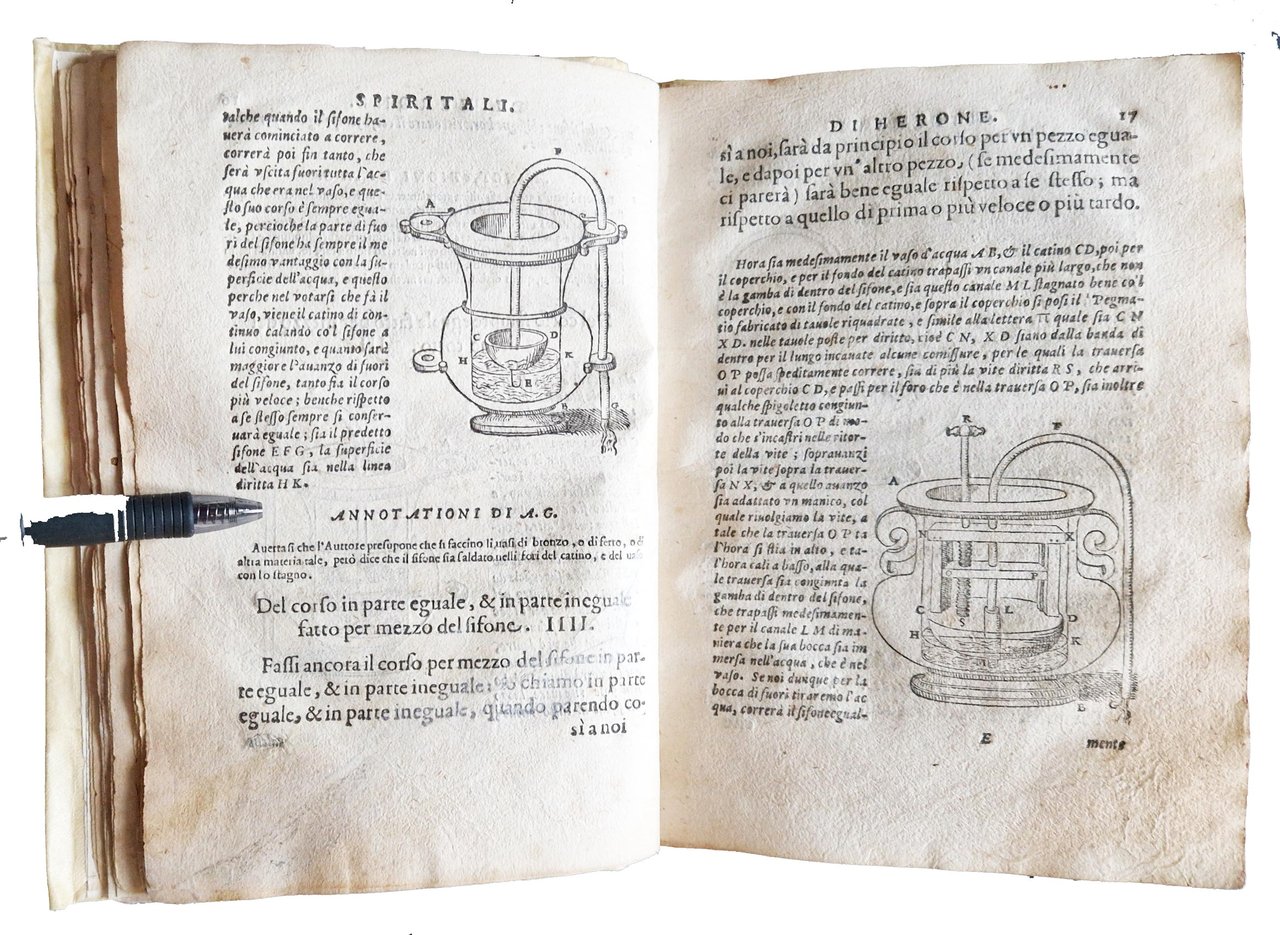 SPIRITALI.
talche quando il ſifone ha-
uerà cominciato a correre,
correrà poi fin tanto, che
ſerà vſcita fuori tutta l'ac-
qua che era nel vaſo, e que-
ſto ſuo corſo è ſempre egua-
le, percioche la parte di fuo
ri del ſifone ha ſempre il me
deſimo vantaggio con la ſu-
perficie dell'acqua, e queſto
perche nel votarſi che fà il
vaſo, viene il catino di con-
tinuo calando co'l ſifone a
lui congiunto, e quanto ſarà
maggiore l'auanzo di fuori
del ſifone, tanto fia il corſo
più veloce; benche riſpetto
a ſe ſteſſo ſempre ſi conſer-
uarà eguale; ſia il predetto
ſifone E F G, la ſuperficie
dell'acqua ſia nella linea
diritta H K.
F
A
C
D
H
K
E
B
G
ANNOTATIONI DI A.G.
Auertaſi che l'Auttore preſupone che ſi faccino li vaſi di bronzo, o di ferro, o d
altra materia tale, però dice che il ſifone ſia ſaldato nelli fori del catino, e del va
con lo ſtagno.
Del corſo in parte eguale, & in parte ineguale
fatto per mezzo del ſifone. IIII.
Faſſi ancora il corſo per mezzo del ſifone in par-
te eguale, & in parte ineguale: & chiamo in parte
eguale, & in parte ineguale, quando parendo co-
sì a noi
DI HERONE. 17
sì a noi, ſarà da principio il corſo per vn pezzo egua-
le, e dapoi per vn' altro pezzo, (ſe medeſimamente
ci parerà) ſarà bene eguale riſpetto a ſe ſteſſo; ma
riſpetto a quello di prima o più veloce o più tardo.
Hora ſia medeſimamente il vaſo d'acqua A B, & il catino C D, poi per
il coperchio, e per il fondo del catino trapaſſi vn canale più largo, che non
è la gamba di dentro del ſifone, e ſia queſto canale M L ſtagnato bene co'l
coperchio, e con il fondo del catino, e ſopra il coperchio ſi poſi il Pegma-
tio fabricato di tauole riquadrate, e ſimile alla lettera π quale ſia C N
X D. nelle tauole poſte per diritto, cioè C N, X D ſiano dalla banda di
dentro per il lungo incauate alcune comiſſure, per le quali la trauerſa
O P poſſa ſpeditamente correre, ſia di più la vite diritta R S, che arri-
ui al coperchio C D, e paſſi per il foro che è nella trauerſa O P, ſia inoltre
qualche ſpigoletto congiun-
to alla trauerſa O P di mo-
do che s'incaſtri nelle ritor-
te della vite; ſoprauanzi
poi la vite ſopra la trauer-
ſa N X, & a quello auanzo
ſia adattato vn manico, col
quale riuolgiamo la vite, a
tale che la trauerſa O P ta
l'hora ſi ſtia in alto, e ta-
l'hora cali a baſſo, alla qua-
le trauerſa ſia congiunta la
gamba di dentro del ſifone,
che trapaſſi medeſimamen-
te per il canale L M di ma-
niera che la ſua bocca ſia im
merſa nell'acqua, che è nel
vaſo. Se noi dunque per la
bocca di fuori tiraremo l'ac
qua, correrà il ſifone egual-
R
F
A
N
X
O
P
C
L
D
S
H
K
M
B
E
mente